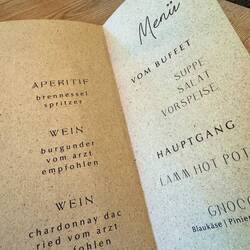 APERITIF
brennessel
spritzer
WEIN
burgunder
vom arzt
empfohlen
WEIN
chardonnay dac
ried vom arzt
empfohlen
Menü
VOM BUFFET
SUPPE
SALAT
VORSPEISE
HAUPTGANG
LAMM HOT POT
GNOCC
Blaukäse | Pinie